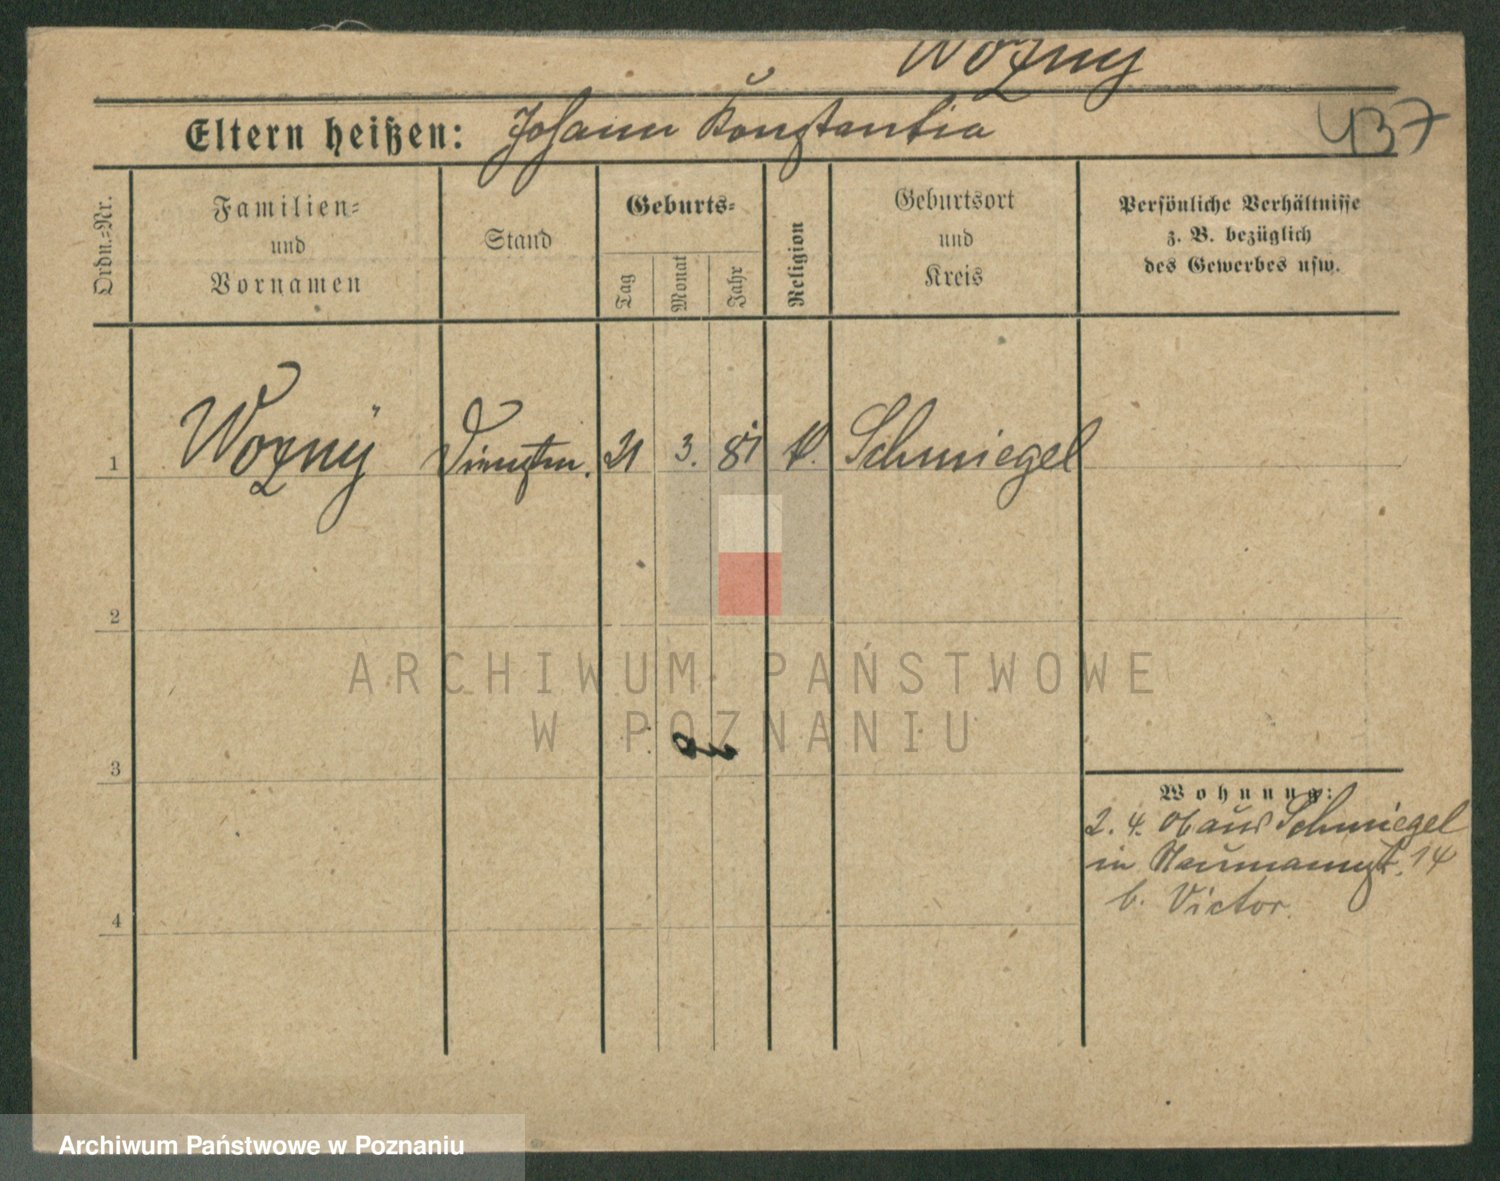 Wozny
Eltern heißen: Johann Konstantia
437
Ordn.=Nr.
Familien=
und
Vornamen
Stand
Geburts=
Tag
Monat
Jahr
Religion
Geburtsort
und
Kreis
Persönliche Verhältnisse
z. B. bezüglich
des Gewerbes usw.
1 Wozny Dienstm. 21 3. 81 k. Schmiegel
2
3
4
Wohnung:
2. 4. 06 aus Schmiegel
in Naumannst. 14
b. Victor.
ARCHIWUM PAŃSTWOWE
W POZNANIU
Archiwum Państwowe w Poznaniu